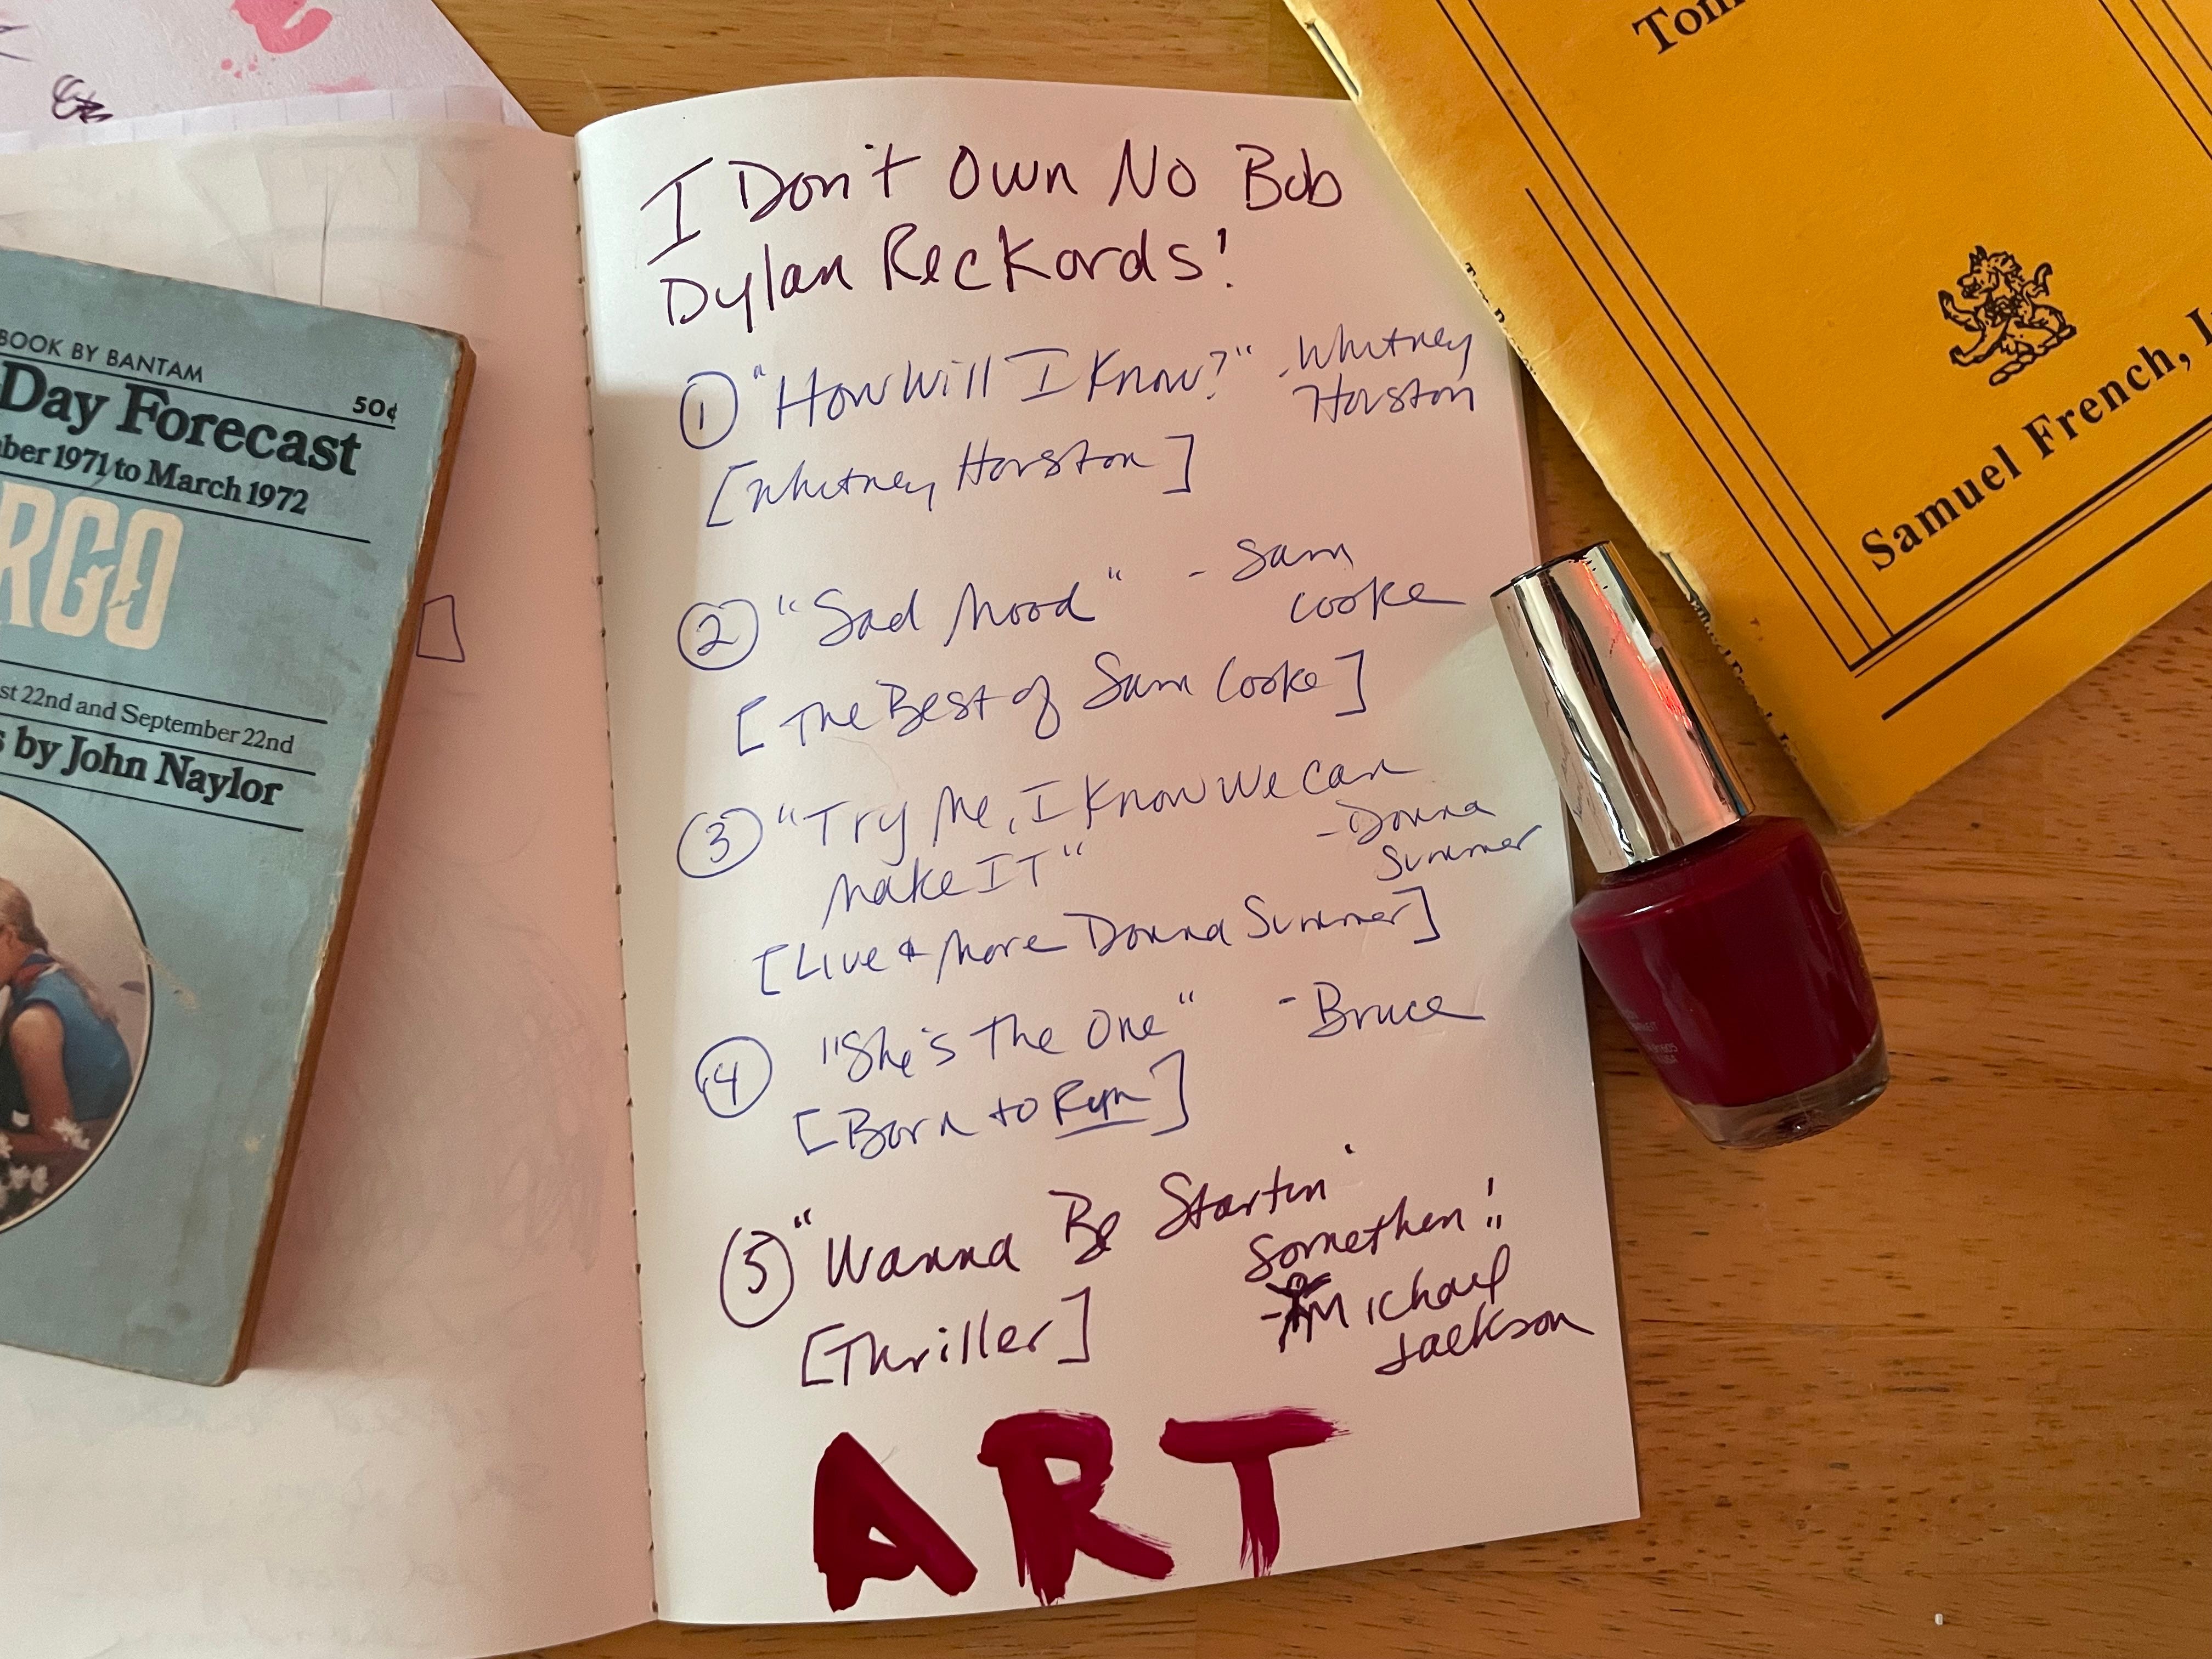 I Don't Own No Bob
Dylan Reckords!
① "How Will I Know?" - Whitney
Houston
[Whitney Houston]
② "Sad Mood" - Sam
Cooke
[The Best of Sam Cooke]
③ "Try Me, I Know We Can
Make IT" - Donna
Summer
[Live & More Donna Summer]
④ "She's The One" - Bruce
[Born to Run]
⑤ "Wanna Be Startin'
Somethen!"
- Michael
Jackson
[Thriller]
ART
BOOK BY BANTAM
Day Forecast 50¢
ber 1971 to March 1972
RGO
st 22nd and September 22nd
s by John Naylor
Tom
Samuel French, I